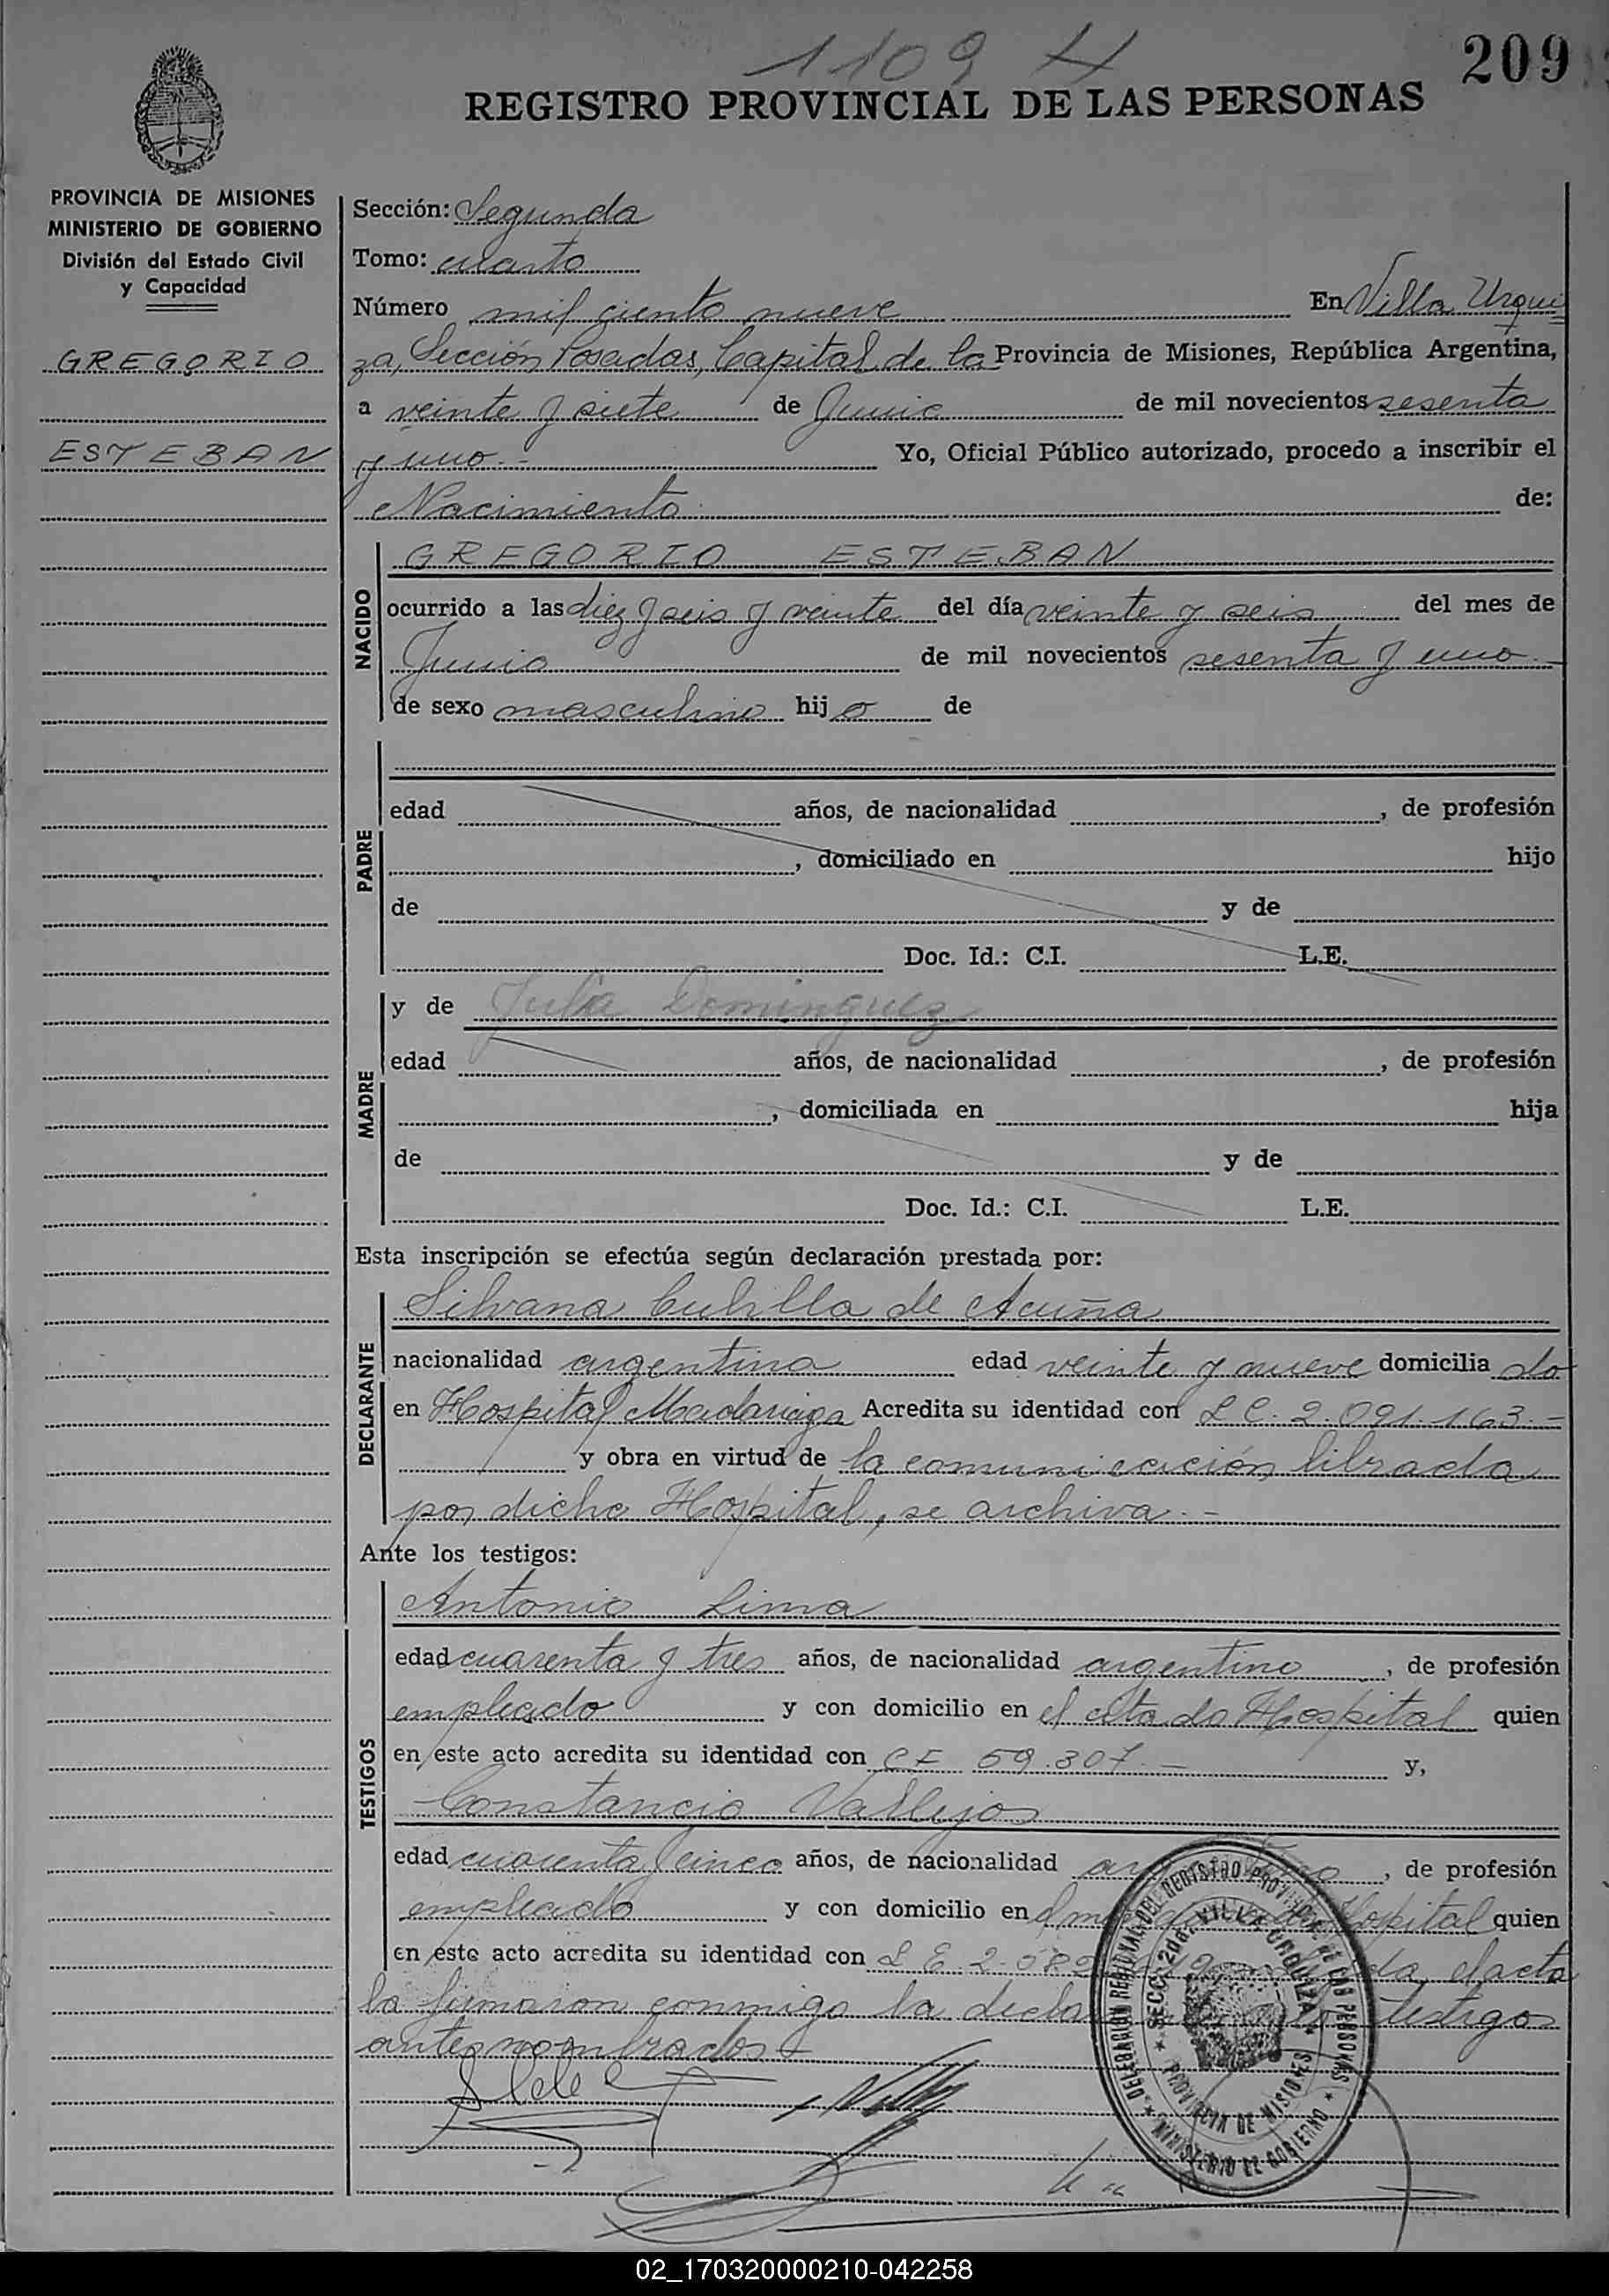 1109 H
209
REGISTRO PROVINCIAL DE LAS PERSONAS
PROVINCIA DE MISIONES
MINISTERIO DE GOBIERNO
División del Estado Civil
y Capacidad
GREGORIO
ESTEBAN
Sección: Segunda
Tomo: cuarto
Número mil ciento nueve En Villa Urqui
za, Sección Posadas, Capital de la Provincia de Misiones, República Argentina,
a veinte y siete de Junio de mil novecientos sesenta
y uno.- Yo, Oficial Público autorizado, procedo a inscribir el
Nacimiento de:
NACIDO
GREGORIO ESTEBAN
ocurrido a las diez y seis y veinte del día veinte y seis del mes de
Junio de mil novecientos sesenta y uno.-
de sexo masculino hijo de
PADRE
edad años, de nacionalidad , de profesión
, domiciliado en hijo
de y de
Doc. Id.: C.I. L.E.
MADRE
y de Julia Dominguez
edad años, de nacionalidad , de profesión
, domiciliada en hija
de y de
Doc. Id.: C.I. L.E.
Esta inscripción se efectúa según declaración prestada por:
DECLARANTE
Silvana de Acuña
nacionalidad argentina edad veinte y nueve domicilia da
en Hospital Madariaga Acredita su identidad con L C. 2.091.163.-
y obra en virtud de la comunicación librada
por dicho Hospital, se archiva.-
Ante los testigos:
TESTIGOS
Antonio Lima
edad cuarenta y tres años, de nacionalidad argentino , de profesión
empleado y con domicilio en el citado Hospital quien
en este acto acredita su identidad con 59.307.- y,
Constancio Vallejos
edad cuarenta y cinco años, de nacionalidad , de profesión
empleado y con domicilio en el Hospital quien
en este acto acredita su identidad con L E 2. el acta
la firmaron conmigo la testigos
antes nombrados
DELEGACION REGIONAL DEL REGISTRO PROVINCIAL DE LAS PERSONAS
SECC. 2da. VILLA URQUIZA
PROVINCIA DE MISIONES
MINISTERIO DE GOBIERNO
02_170320000210-042258